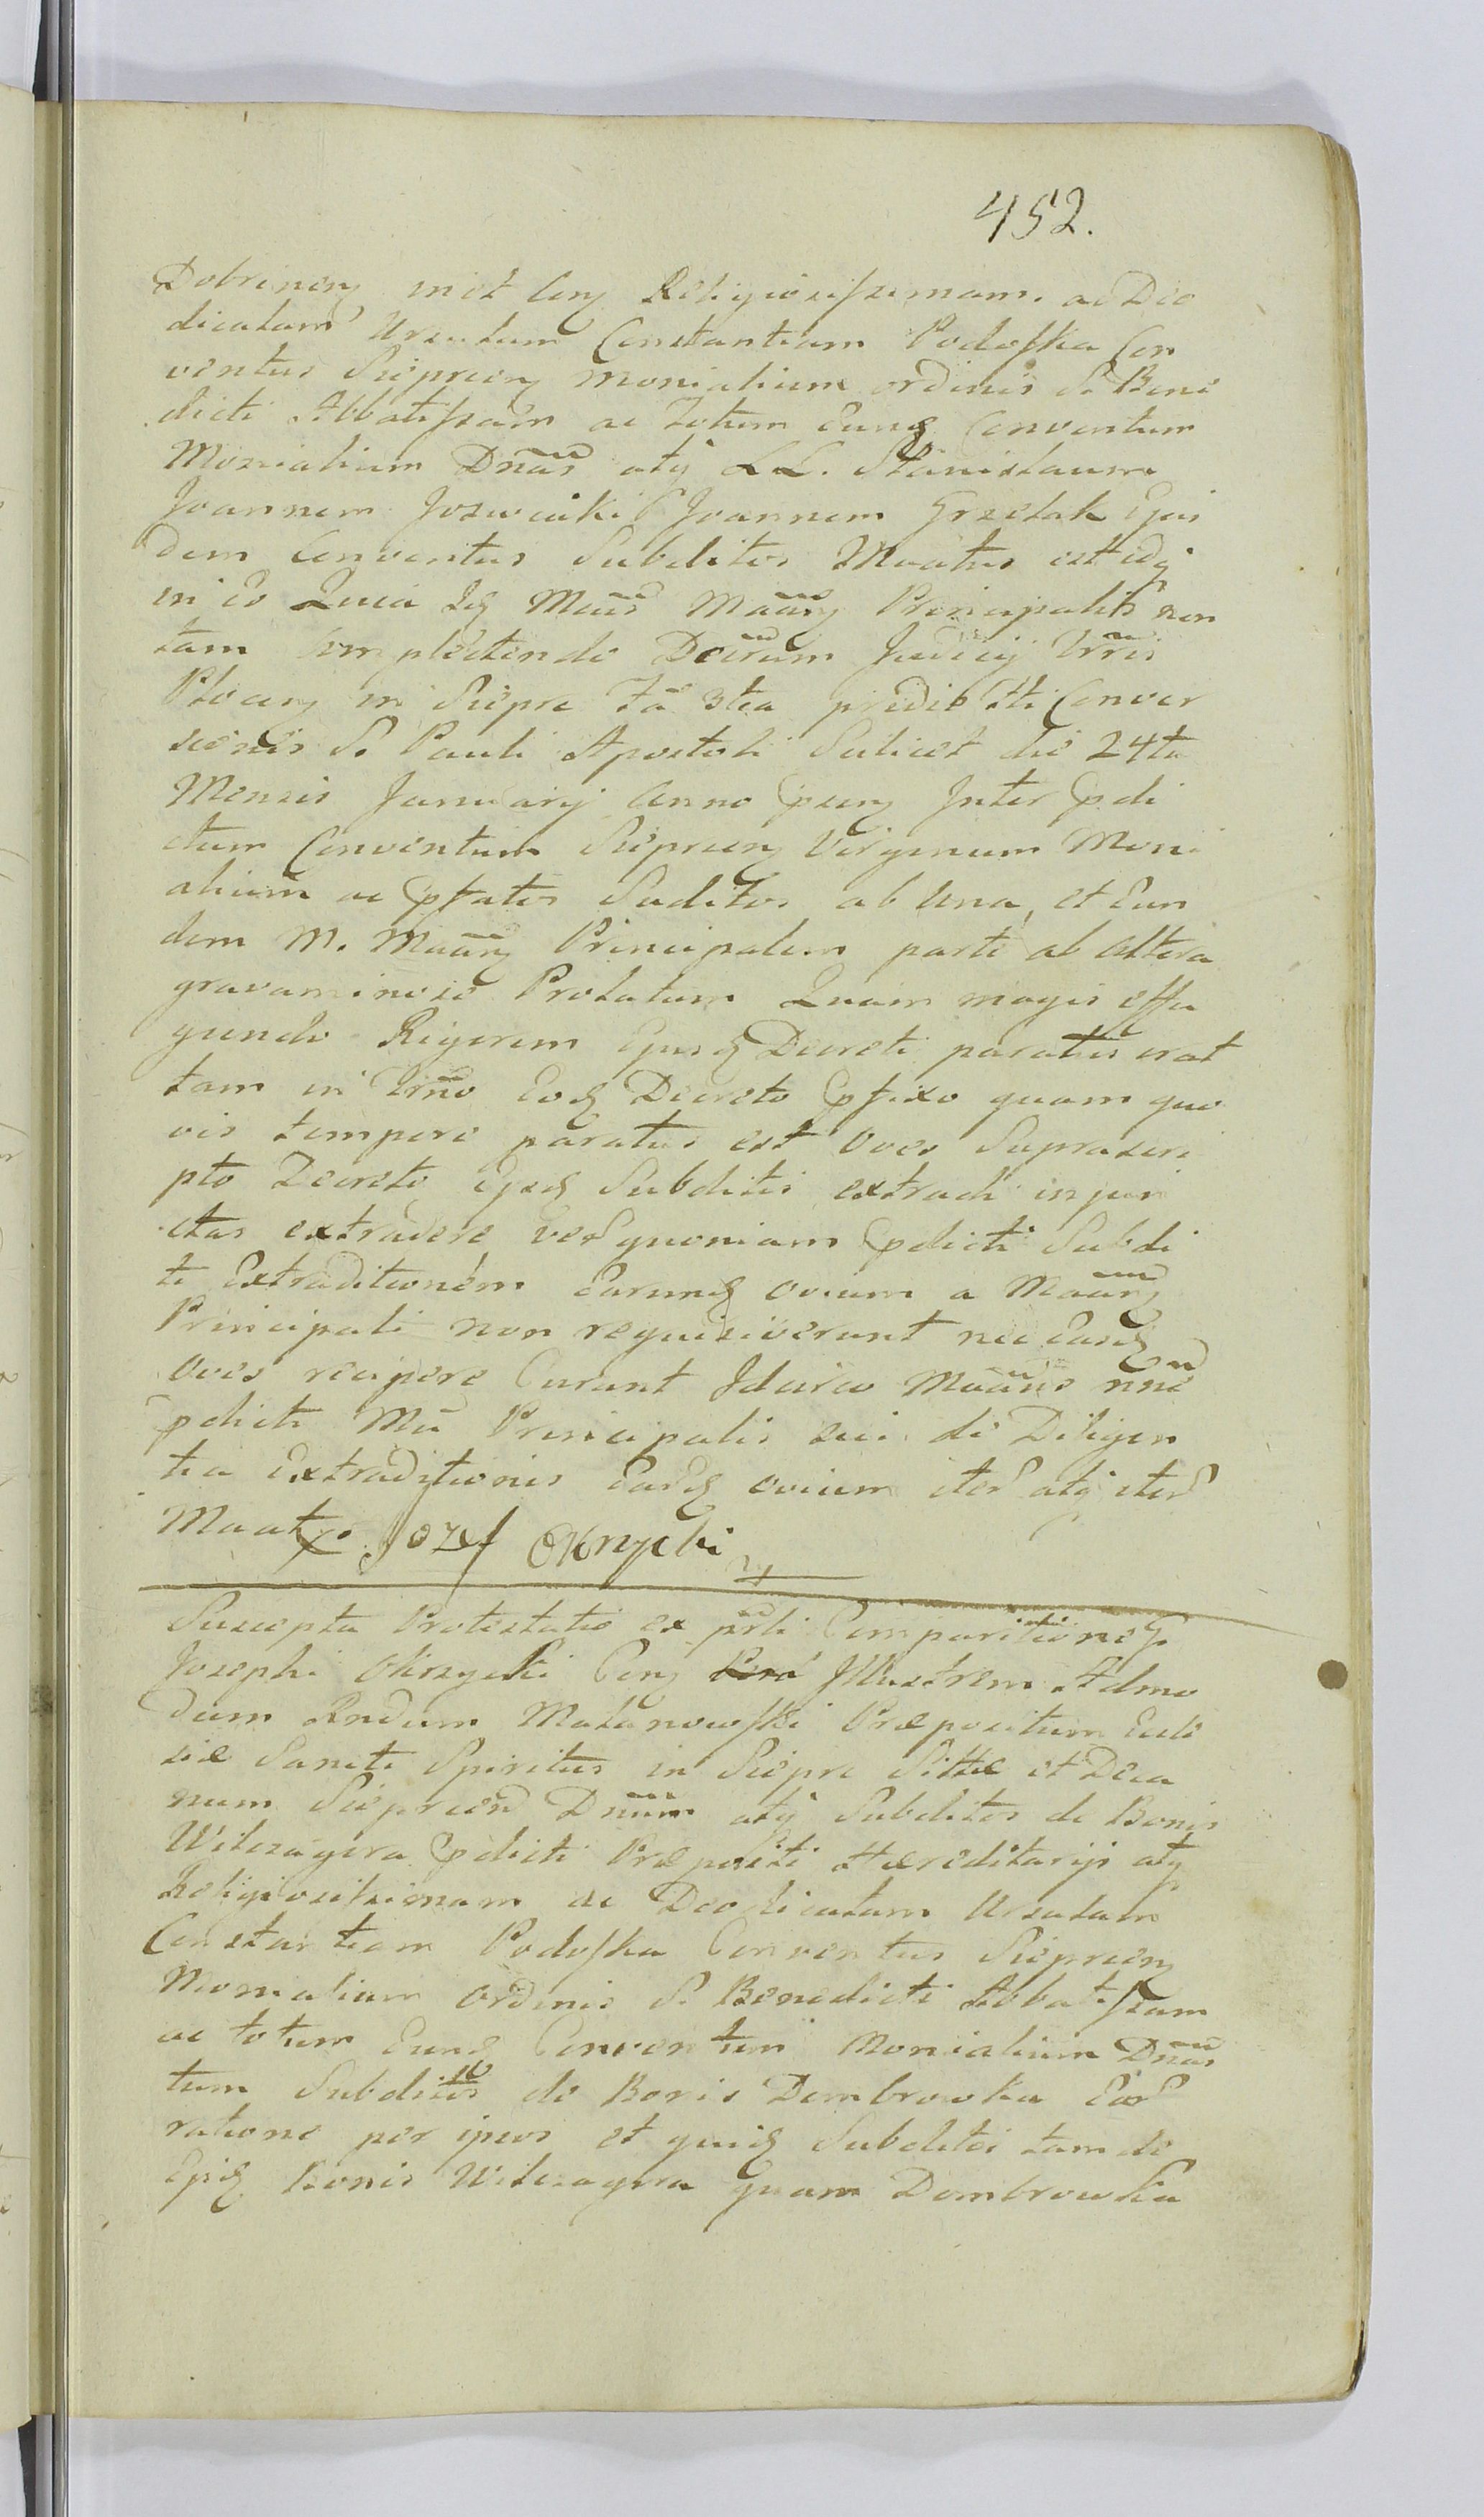 452.
Dobrinen miet Coñ Religiosissimam. ac Deo
dicatam Ursulam Constantiam Podoska Con
ventus Sieprcen monialium ordinis S. Bene
dicti Abbatissam ac totum eund Conventum
Monialium Dnas atq LL. Stanislaum
Joannem Jozwiaki Joannem Grzelak Ejus
dem Conventus Subditos Maatus est idq
in eo Quia Id Maus Maan Principalis non
tam complectendo Dcrum Judicij Trris
Plocen in Sieprc fa 3tia pridie fti Conver
sionis S. Pauli Apostoli Scilicet die 24ta
Mensis Januarij Anno psen Inter pdi
ctum Conventum Sieprcen Virginum Moni
alium ac pfatos Suditos ab una, et Eun
dem M. Maan Principalem parte ab altera
gravaminose Prolatum Quam magis effu
giendo Rigorem Ejusd Decreti paratus erat
tam in Trno Eod Decreto pfixo quam quo
vis tempore paratus est oves Suprascri
pto Decreto ejsd Subditis extradi injun
ctas extradere ver quoniam pdicti Subdi
ti Extraditionem Earund ovium a Maan
Principali non requisiverunt nec Easd
oves recipere Curant Idcirco Maans nne
pdicti Mci Principalis sui de Diligen
tia Extraditionis Eard ovium iter atq iter
Maatr. Jozef Okrycki
mp
Suscepta Protestatio ex psrli Comparitione G
Josephi Okrzycki Con Illustrem Admo
dum Rndum Malanowski Præpositum Eccle
siæ Sancti Spiritus in Sieprc Sittæ et Deca
num Sieprcen Dnum atq Subditos de Bonis
Wilczagora pdicti Præpositi Hæreditarijs atq
Religiosissimam ac Deo dicatam Ursulam
Constantiam Podoska Conventus Sieprcen
Monialium Ordinis S. Benedicti Abbatissam
ac totum Eund Conventum Monialium Dnas
tum Subditos de Bonis Dombrowka Ear
ratione per ipsos et quid Subditos tam de
Ejsd Bonis Wilczagora quam Dombrowka